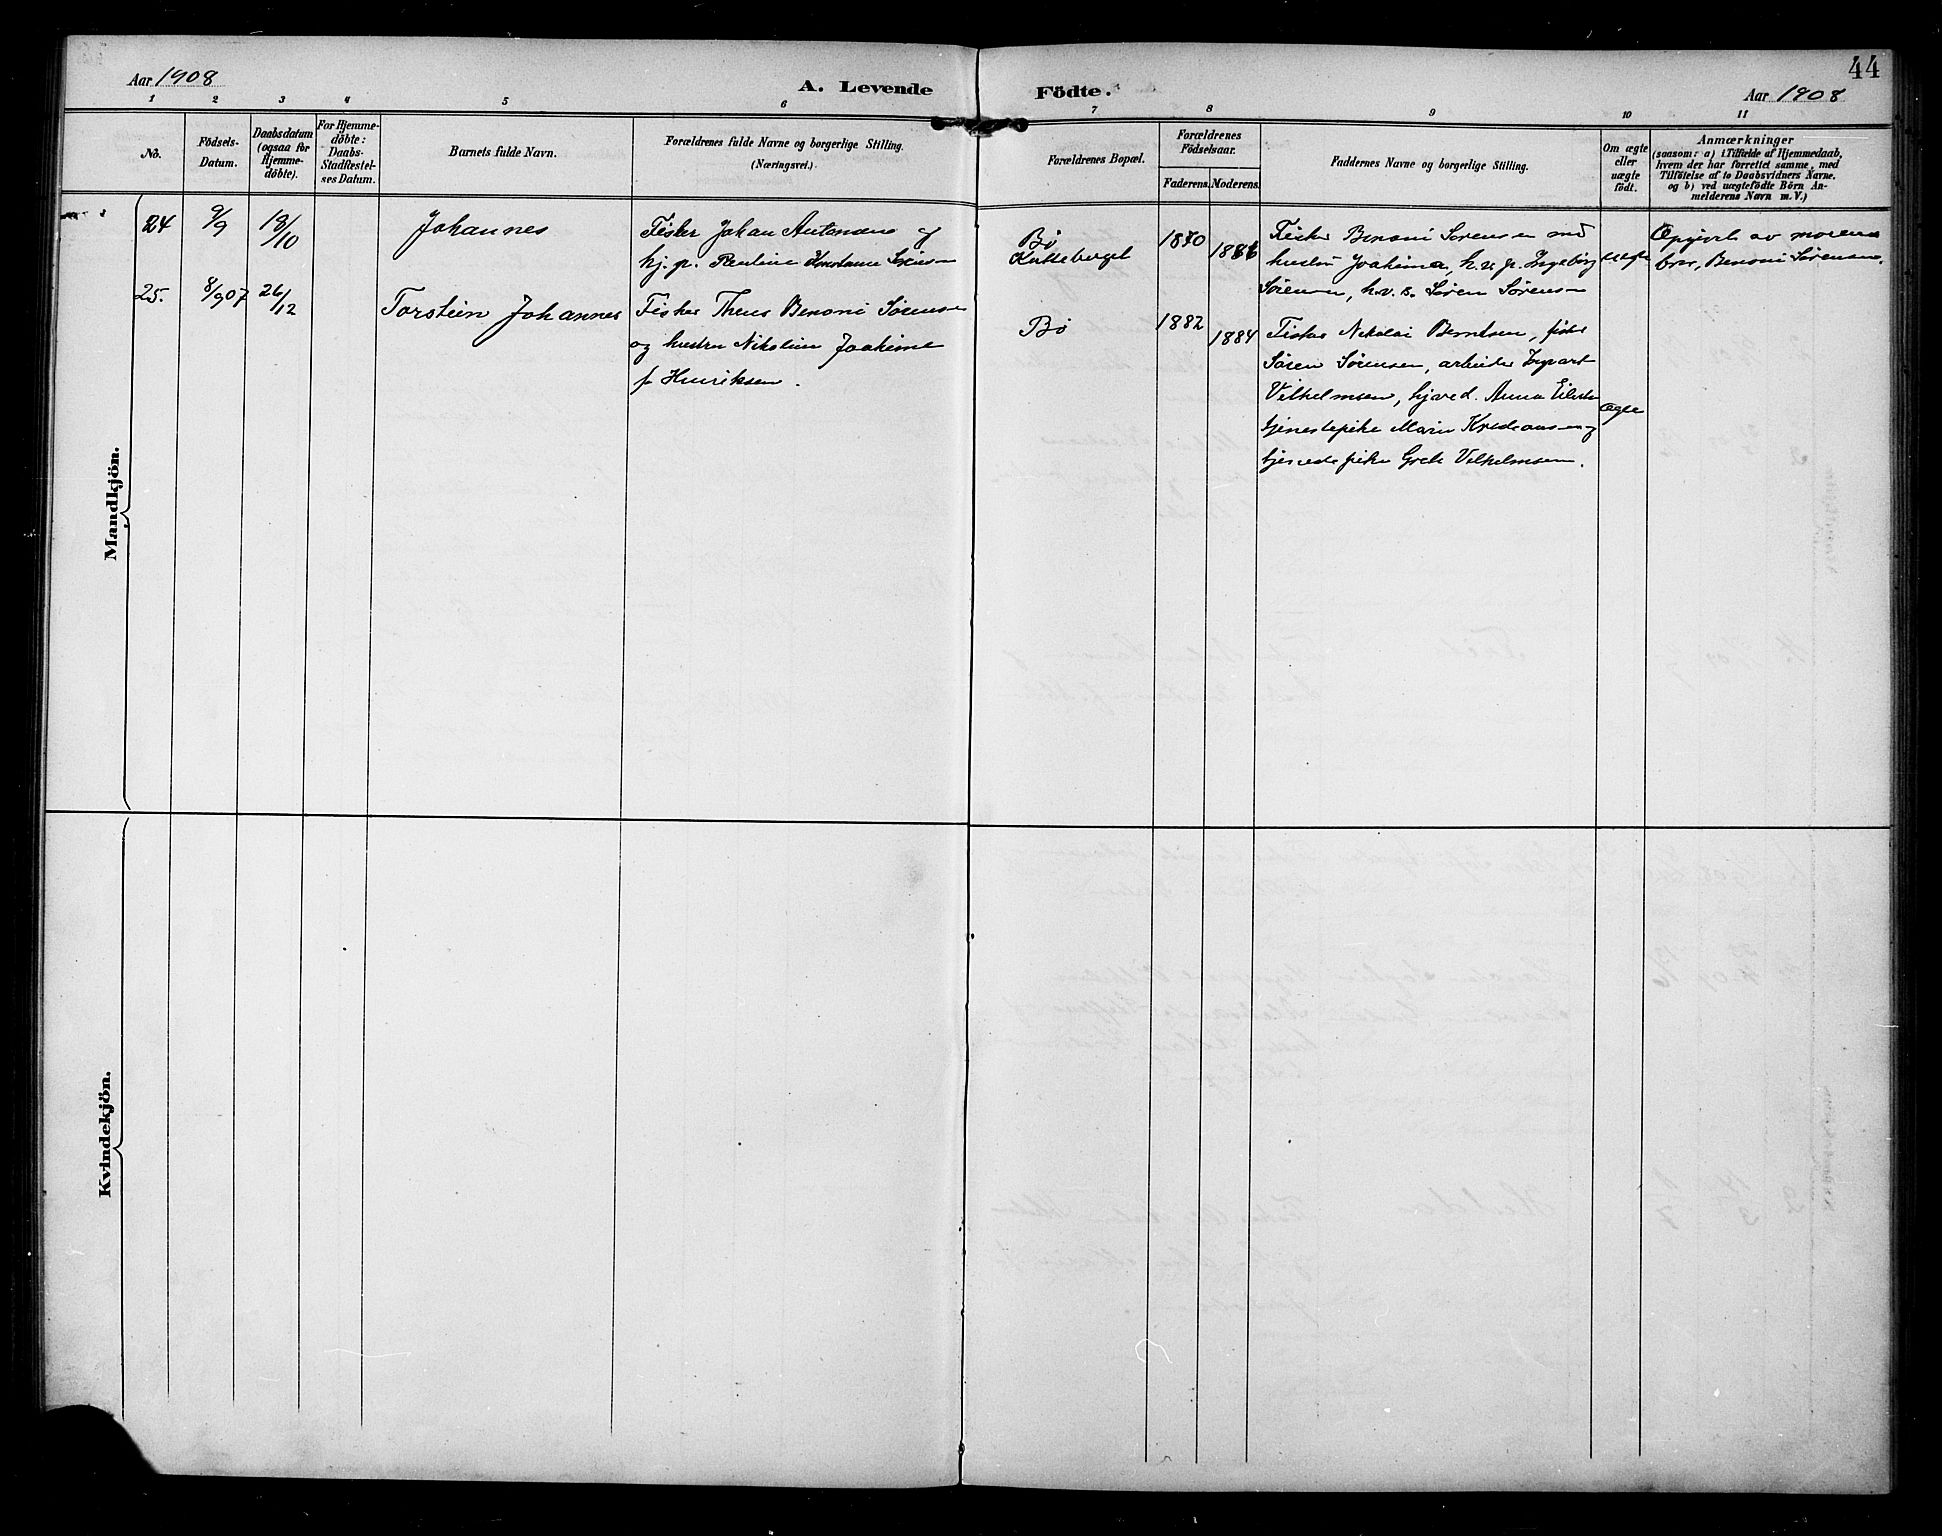 44
Aar 1908
A. Levende Födte.
Aar 1908
1 2 3 4 5 6 7 8 9 10 11
No.
Födsels-
Datum.
Daabsdatum
(ogsaa for
Hjemme-
döbte).
For Hjemme-
döbte:
Daabs-
Stadfæstel-
ses Datum.
Barnets fulde Navn.
Forældrenes fulde Navne og borgerlige Stilling.
(Næringsvei.)
Forældrenes Bopæl.
Forældrenes
Födselsaar.
Faderens. Moderens.
Faddernes Navne og borgerlige Stilling.
Om ægte
eller
uægte
födt.
Anmærkninger
(saasom: a) i Tilfælde af Hjemmedaab,
hvem der har forrettet samme, med
Tilföielse af to Daabsvidners Navne.
og b) ved uægtefödte Börn An-
melderens Navn m. V.)
Mandkjön.
24 9/9 18/10 Johannes
Fisker Johan Antonsen og
hj. p.
Bø
1870
Fisker Benoni Sørensen med
hustru Joakima, h. v. p. Ingeborg
Sørensen, h. v. s. Søren Sørensen
uegte
Opgivet av morens
bror, Benoni Sørensen.
25. 8/907 26/12 Torstein Johannes
Fisker Benoni Sørensen
og hustru Joakime
f. Henriksen.
Bø
1882 1884
Fisker Nikolai Berntsen, fisker
Søren Sørensen, arbeider
Vilhelmsen, Anna
tjenestepike
tjenestepike Vilhelmsen.
Ægte
Kvindekjön.